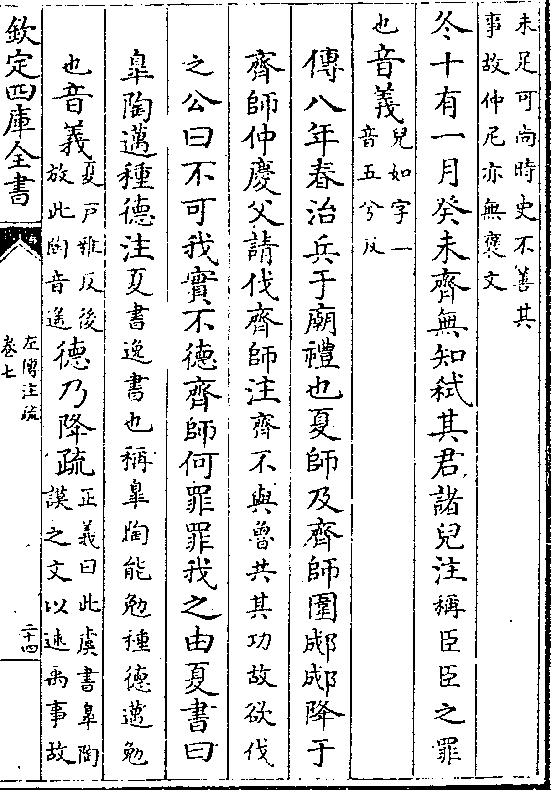 未足可尚時史不善其
事故仲尼亦無襃文
冬十有一月癸未齊無知弑其君諸兒注稱臣臣之罪
也音義兒如字一
音五兮反
傳八年春治兵于廟禮也夏師及齊師圍郕郕降于
齊師仲慶父請伐齊師注齊不與魯共其功故欲伐
之公曰不可我實不德齊師何罪罪我之由夏書曰
臯陶邁種德注夏書逸書也稱臯陶能勉種德邁勉
也音義夏戸雅反後
放此陶音遥德乃降疏正義曰此虞書臯陶
謨之文以述禹事故
欽定四庫全書
左傳注疏
卷七
二十四